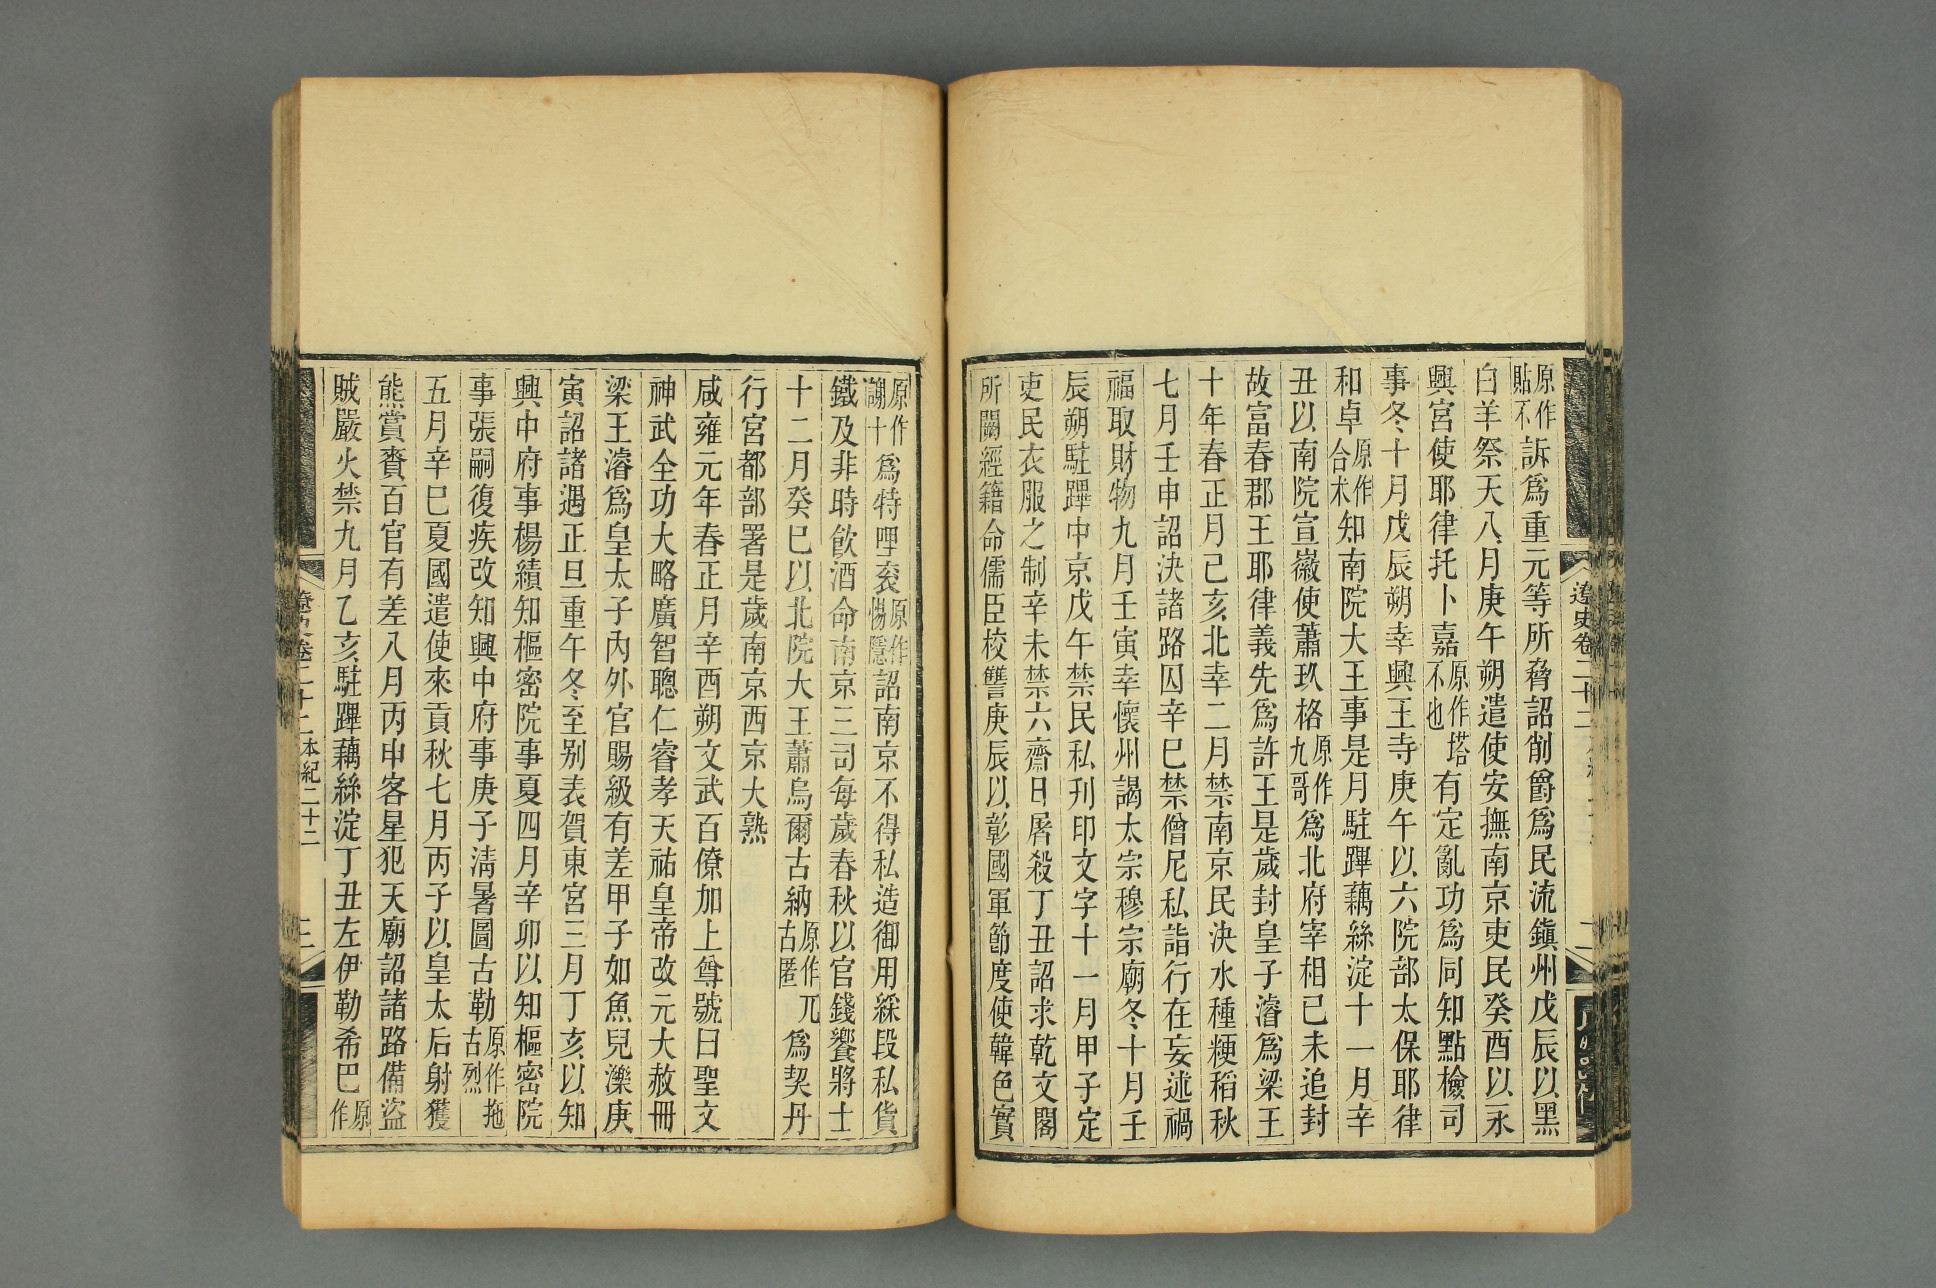 原作
貼不
訴爲重元等所脅詔削爵爲民流鎭州戊辰以黑
白羊祭天八月庚午朔遣使安撫南京吏民癸酉以永
興宮使耶律托卜嘉
原作塔
不也
有定亂功爲同知點檢司
事冬十月戊辰朔幸興王寺庚午以六院部太保耶律
和卓
原作
合术
知南院大王事是月駐蹕藕絲淀十一月辛
丑以南院宣徽使蕭玖格
原作
九哥
爲北府宰相已未追封
故富春郡王耶律義先爲許王是歲封皇子濬爲梁王
十年春正月己亥北幸二月禁南京民決水種粳稻秋
七月壬申詔決諸路囚辛巳禁僧尼私詣行在妄述禍
福取財物九月壬寅幸懷州謁太宗穆宗廟冬十月壬
辰朔駐蹕中京戊午禁民私刊印文字十一月甲子定
吏民衣服之制辛未禁六齋日屠殺丁丑詔求乾文閣
所闕經籍命儒臣校讐庚辰以彰國軍節度使韓色實
原作
謝十
爲特哩衮
原作
惕隱
詔南京不得私造御用綵段私貨
鐵及非時飮酒命南京三司每歲春秋以官錢饗將士
十二月癸巳以北院大王蕭烏爾古納
原作兀
古匿
爲契丹
行宮都部署是歲南京西京大熟
咸雍元年春正月辛酉朔文武百僚加上尊號曰聖文
神武全功大略廣智聰仁睿孝天祐皇帝改元大赦冊
梁王濬爲皇太子內外官賜級有差甲子如魚兒濼庚
寅詔諸遇正旦重午冬至别表賀東宮三月丁亥以知
興中府事楊績知樞密院事夏四月辛卯以知樞密院
事張嗣復疾改知興中府事庚子淸暑圖古勒
原作拖
古烈
五月辛巳夏國遣使來貢秋七月丙子以皇太后射獲
熊賞賚百官有差八月丙申客星犯天廟詔諸路備盜
賊嚴火禁九月乙亥駐蹕藕絲淀丁丑左伊勒希巴
原
作
遼史卷二十二
本紀二十二
三